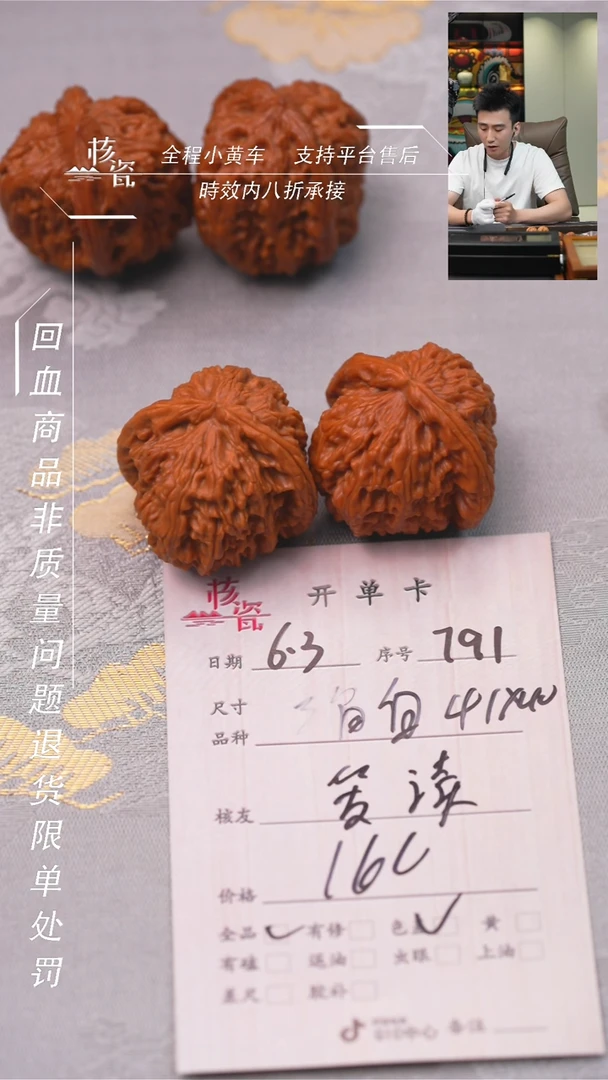 核瓷
全程小黄车 支持平台售后
時效内八折承接
回血商品非质量问题退货限单处罚
核瓷
开单卡
日期 6.3 序号 791
尺寸
品种 41
核友
价格 16
全品 有修 黄
有磕 返油 虫眼 上油
差尺 胶补
中心 备注